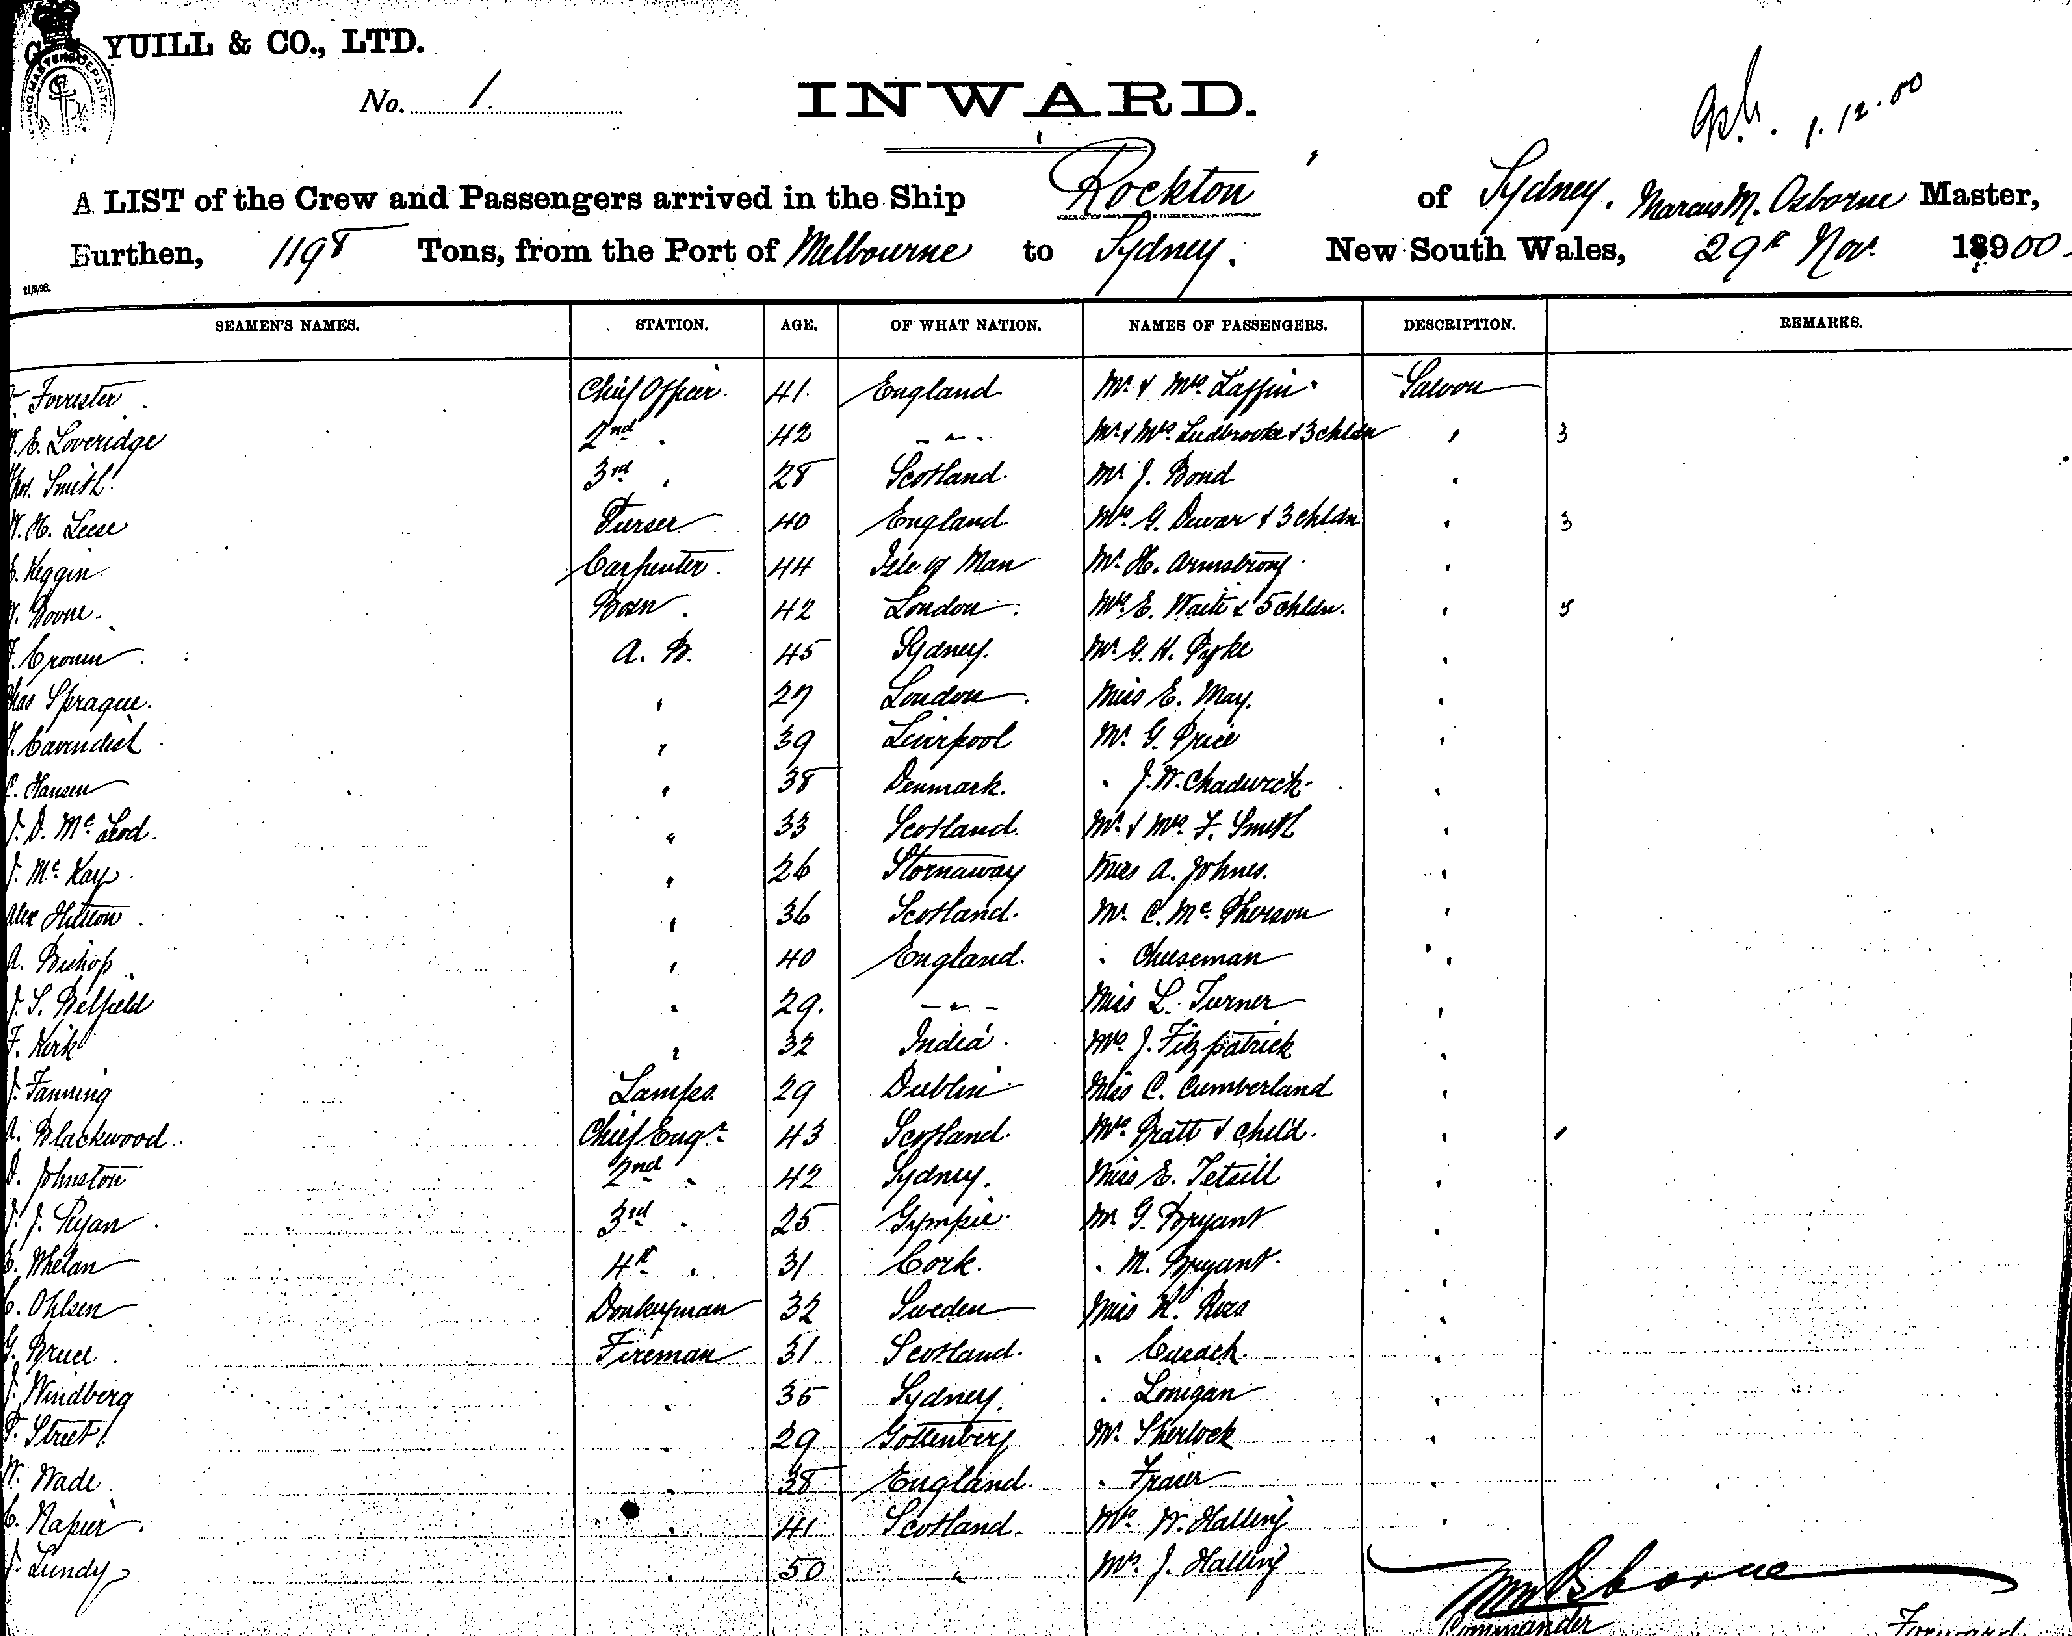 YUILL & CO., LTD.
No. 1.
INWARD.
1.12.00
A LIST of the Crew and Passengers arrived in the Ship Rockton of Sydney. Marcus M. Osborne Master,
Burthen, 1198 Tons, from the Port of Melbourne to Sydney. New South Wales, 29th Nov. 1900.
SEAMEN'S NAMES. STATION. AGE. OF WHAT NATION. NAMES OF PASSENGERS. DESCRIPTION. REMARKS.
Forrester Chief Officer. 41. England Mr. & Mrs. Laffin Saloon
W. E. Loveridge 2nd " 42 - " - Mr & Mrs. Ludbrooke & 3 chldn " 3
Thos. Smith 3rd " 28 Scotland Mr J. Bond "
W. H. Leese Purser 40 England Mrs. G. Dewar & 3 chldn " 3
Keggin Carpenter. 44 Isle of Man Mr. H. Armstrong "
Boone. Bosn. 42 London Mrs. E. Waite & 5 chldn. " 5
Cronin A. B. 45 Sydney. Mr. G. H. Pyke "
Chas Sprague. " 27 London Miss E. May. "
Cavendish " 39 Liverpool Mr. G. Price "
C. Hansen " 38 Denmark. " J. W. Chadwick "
J. D. McLeod. " 33 Scotland. Mr. & Mrs. F. Smith "
J. McKay. " 26 Stornaway Miss A. Johnes. "
Alex Hutton " 36 Scotland. Mr. C. McPherson "
A. Bishop " 40 England. " Cheeseman "
J. S. Belfield " 29. - " - Miss L. Turner "
F. Kirk " 32 India Mrs. J. Fitzpatrick "
J. Fanning Lamps. 29 Dublin Miss C. Cumberland "
A. Blackwood. Chief Engr. 43 Scotland. Mrs. Pratt & child. " 1
D. Johnston 2nd " 42 Sydney. Miss E. "
J. J. Ryan 3rd " 25 Gympie. Mr G. Bryant "
Whelan 4th " 31 Cork. " M. Bryant. "
C. Ohlsen Donkeyman 32 Sweden Miss K. Rees "
G. Bruce Fireman 31 Scotland. " Cusack. "
J. Windberg " 35 Sydney. " Lonigan "
Street " 29 Gottenberg Mr. Sherlock "
W. Wade " 38 England. " "
C. Napier. " 41 Scotland. Mrs. W. Halling "
J. Lundy " 50 " Mrs. J. Halling
MM Osborne
Commander
Forward